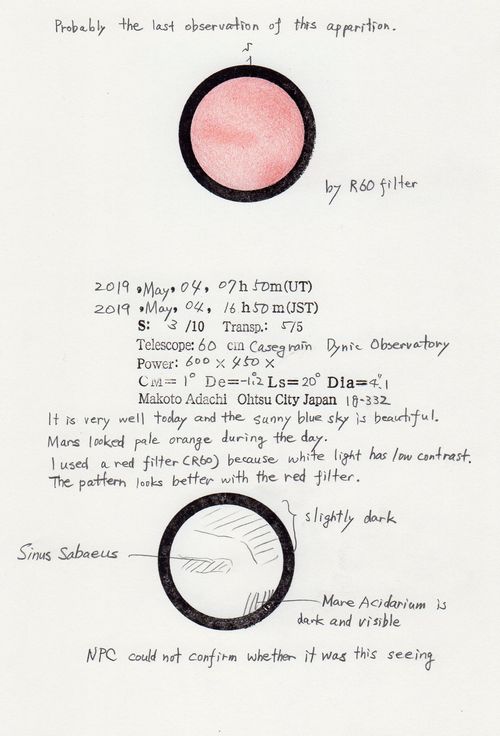 Probably the last observation of this apparition.
S
by R60 filter
2019, May, 04, 07h 50m(UT)
2019, May, 04, 16h50m(JST)
S: 3 /10 Transp.: 5/5
Telescope: 60 cm Casegrain Dynic Observatory
Power: 600 × 450 ×
CM= 1° De=-1.2° Ls=20° Dia=4".1
Makoto Adachi Ohtsu City Japan 18-332
It is very well today and the sunny blue sky is beautiful.
Mars looked pale orange during the day.
I used a red filter (R60) because white light has low contrast.
The pattern looks better with the red filter.
slightly dark
Sinus Sabaeus
Mare Acidarium is
dark and visible
NPC could not confirm whether it was this seeing